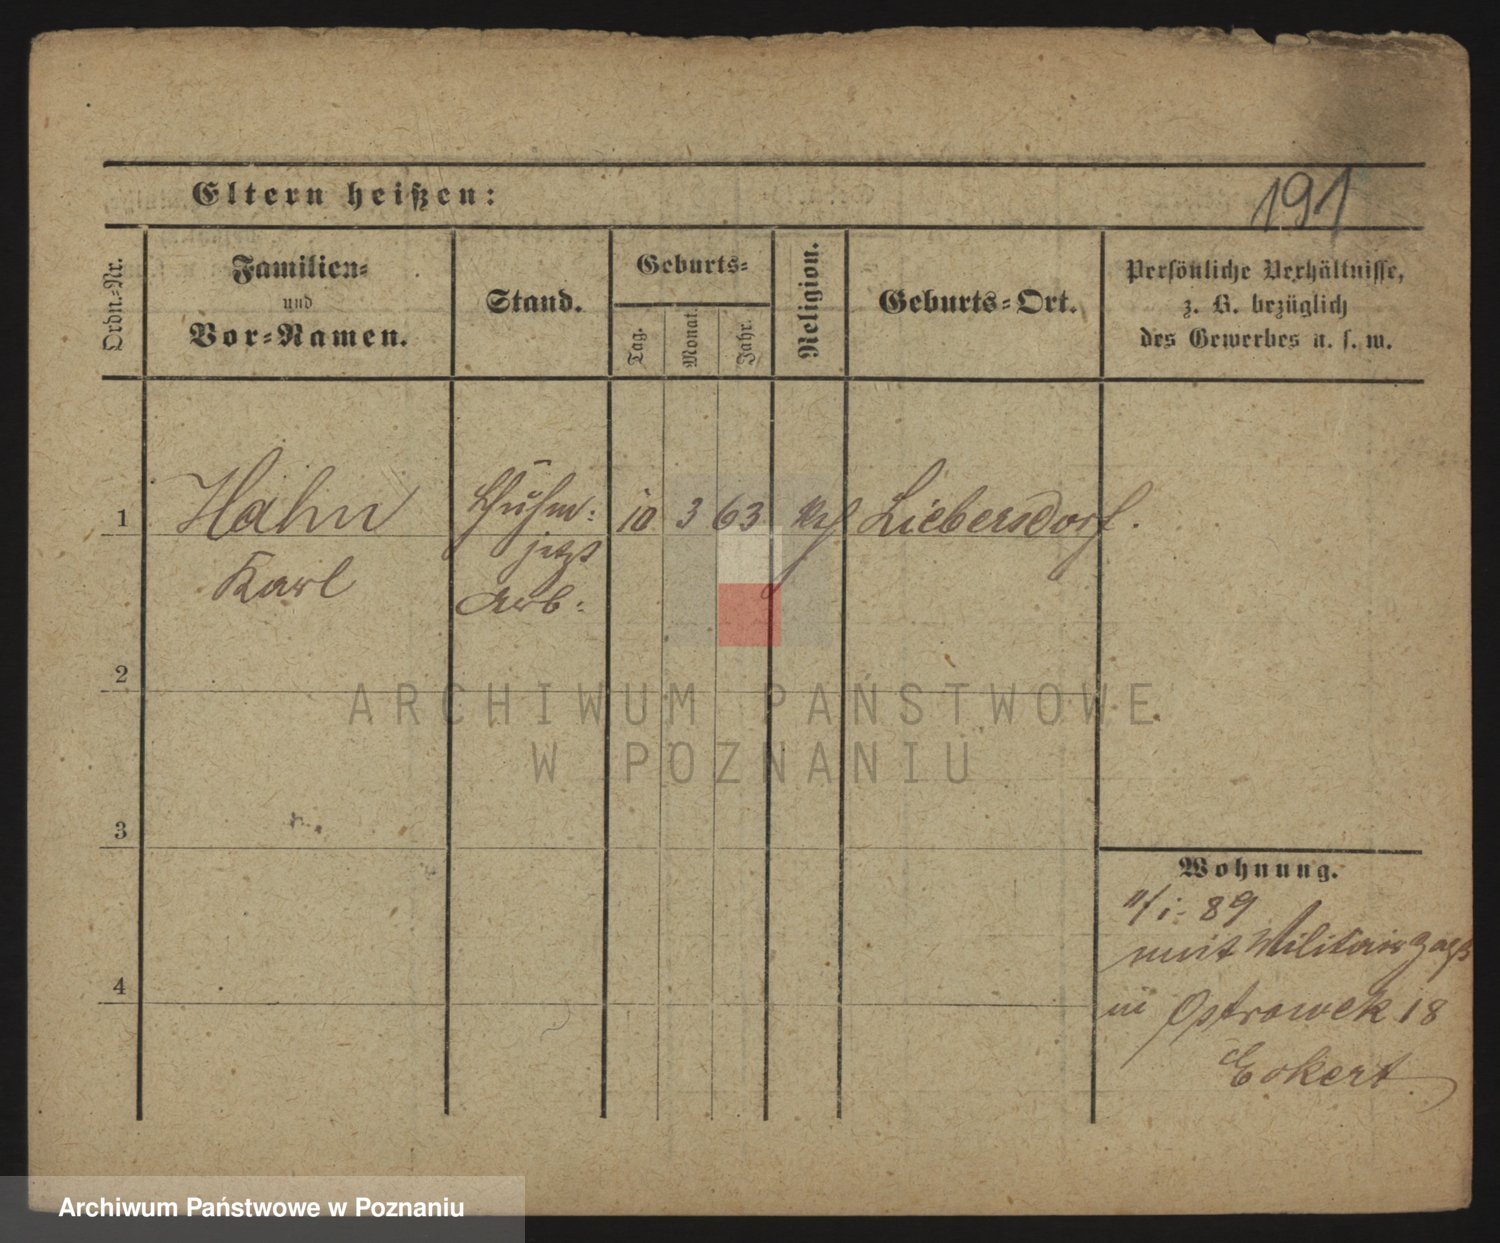 Eltern heißen:
191
Ordn.-Nr.
Familien-
und
Vor-Namen.
Stand.
Geburts-
Tag.
Monat.
Jahr.
Religion.
Geburts-Ort.
Persönliche Verhältnisse,
z. B. bezüglich
des Gewerbes u. s. w.
1
Hahn
Karl
Schuhm:
jetzt
Arb:
10 3 63
Liebersdorf.
2
3
4
Wohnung.
11/1. 89
mit Militair
in Ostrowek 18
Eckert
ARCHIWUM PAŃSTWOWE
W POZNANIU
Archiwum Państwowe w Poznaniu